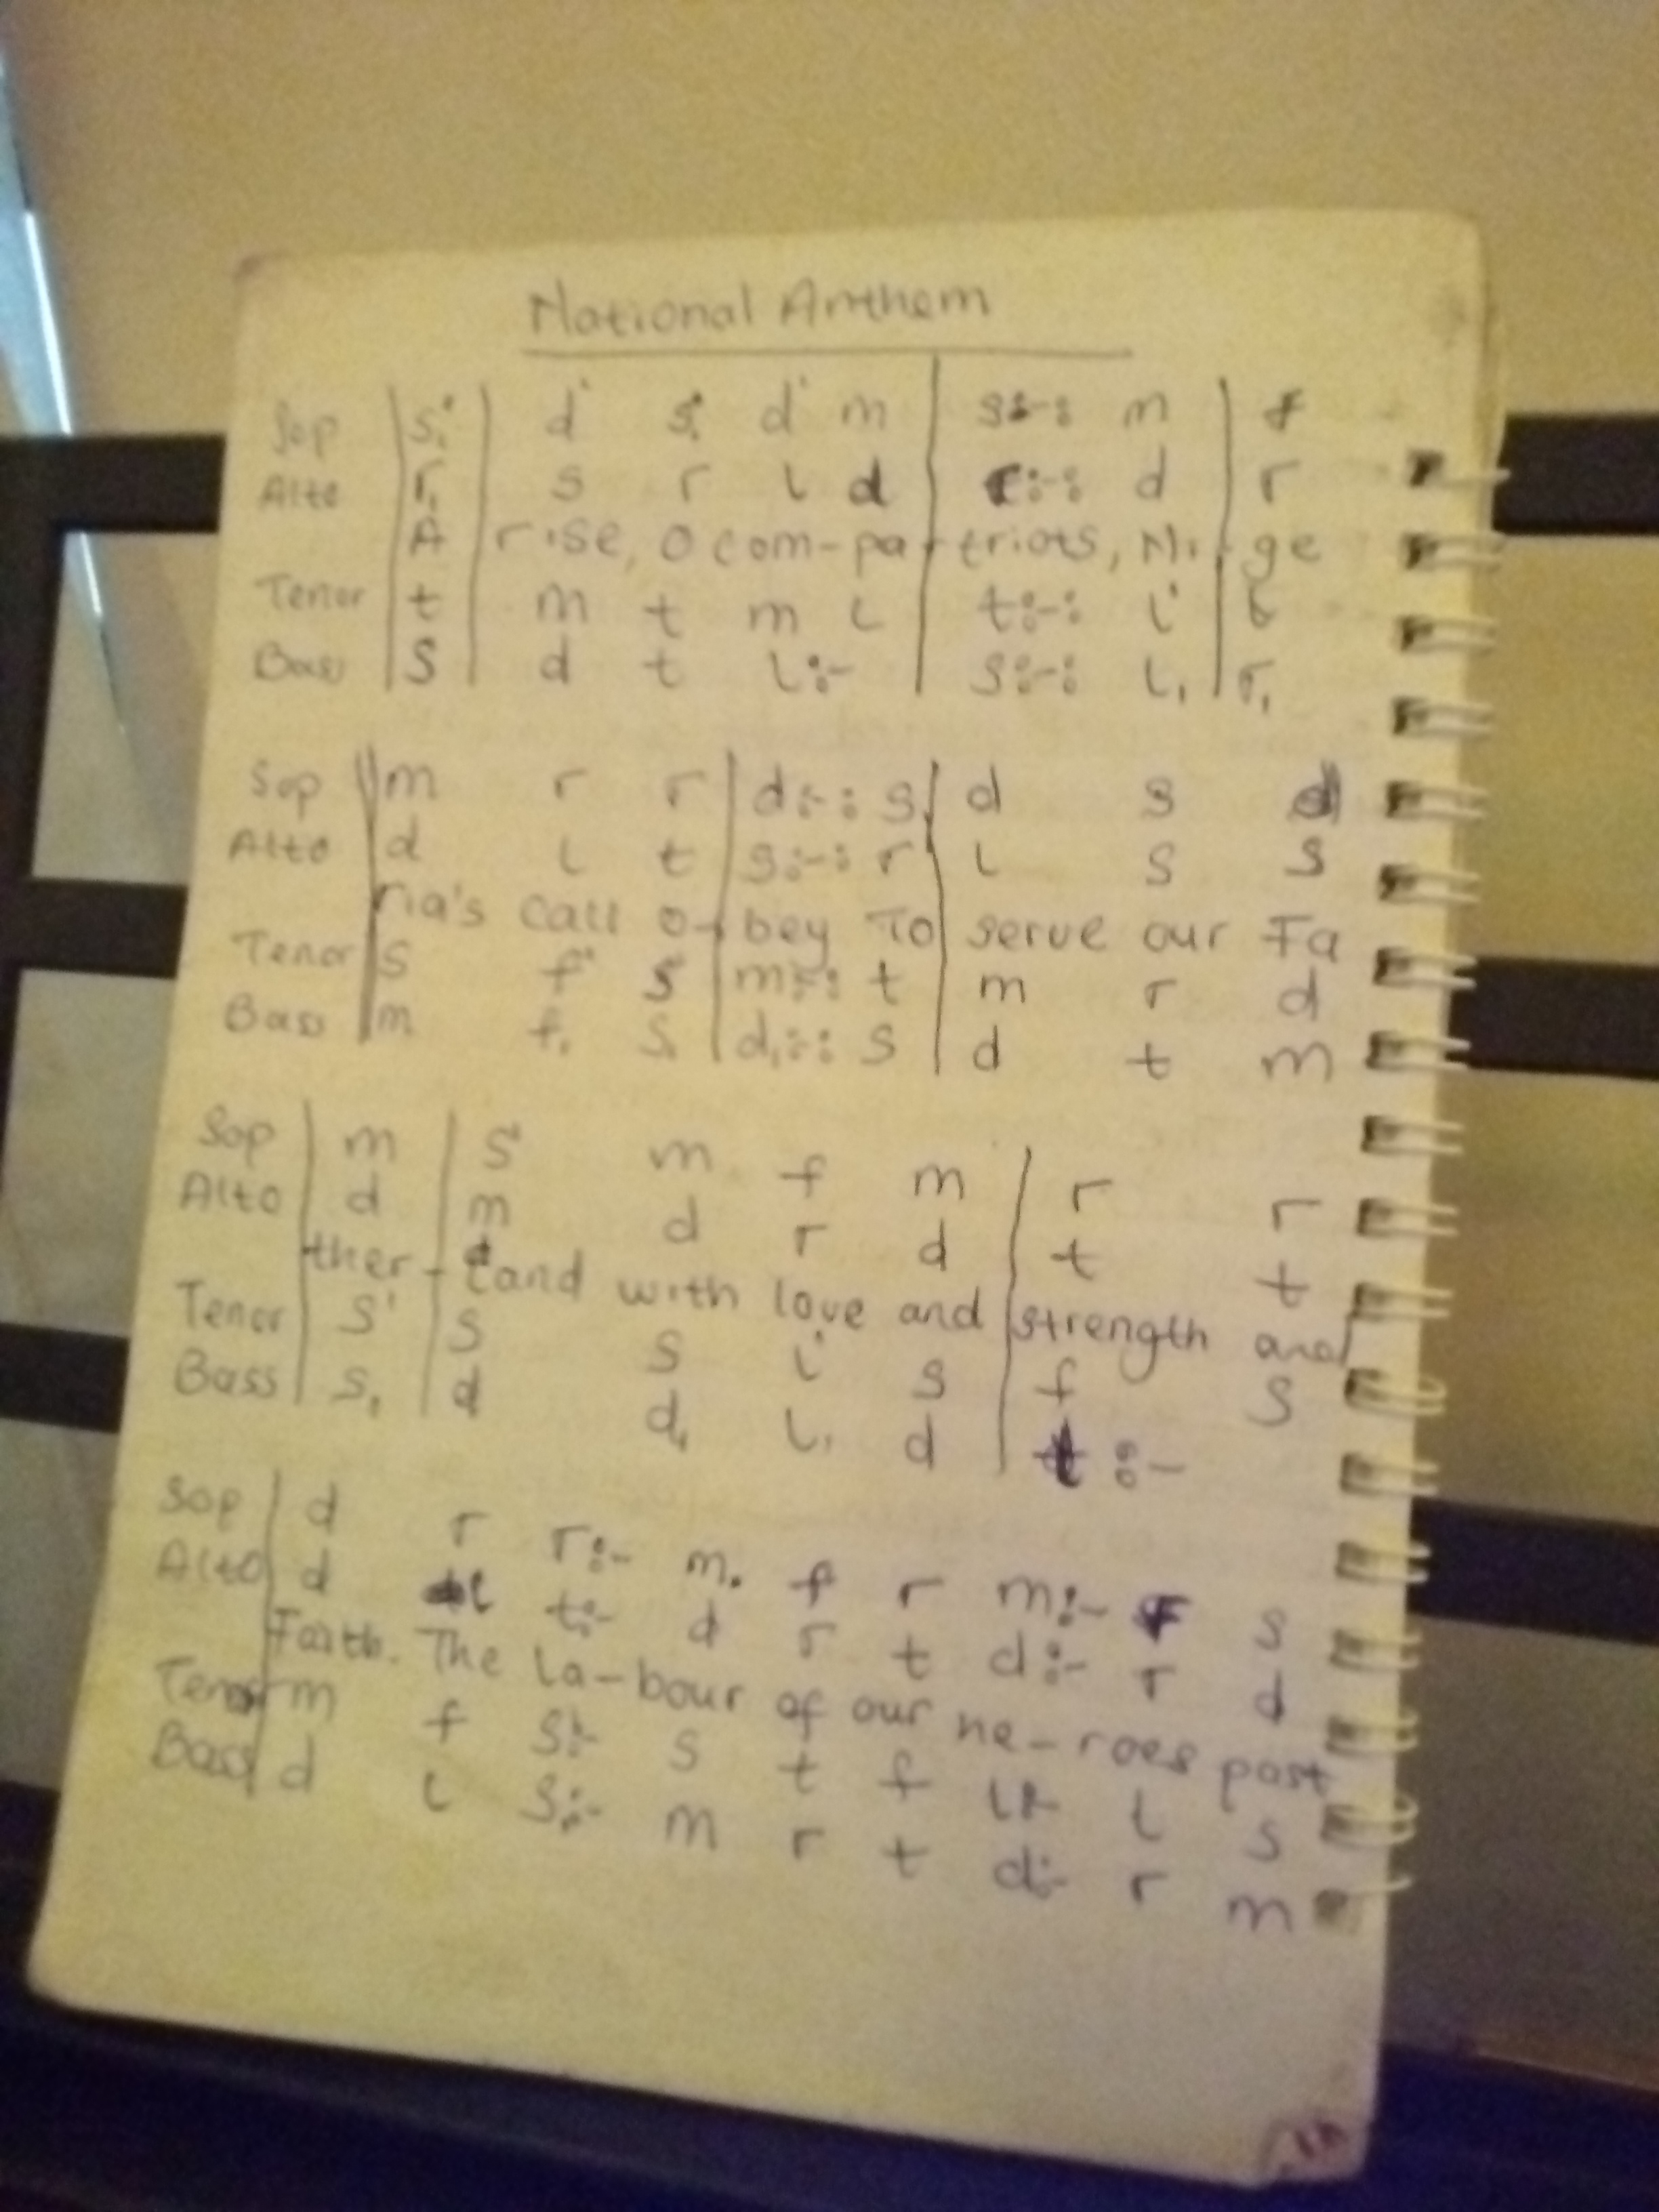 National Anthem
Sop | s | d' s d' m | s:-: m | f
Alto | r, | s r l d | r:-: d | r
A | rise, O com-pa-triots, Ni-ge
Tenor | t | m t m l | t:-: l' |
Bass | S | d t l:- | s:-: l, | r,
Sop || m r r | d:-: s, | d s d
Alto | d l t | s:-: r | l s s
ria's call o-bey To serve our Fa
Tenor | s f' s | m:-: t | m r d
Bass | m f, s, | d,:-: s | d t m
Sop | m | s' m f m | r r
Alto | d | m d r d | t t
ther-land with love and strength and
Tenor | s' | s s l' s | f s
Bass | s, | d d, l, d | t :-
Sop | d r r:- m. f r m:- f s
Alto | d l t:- d r t d:- r d
Faith. The la-bour of our he-roes past
Tenor | m f s:- s t f l:- l s
Bass | d l s:- m r t d:- r m